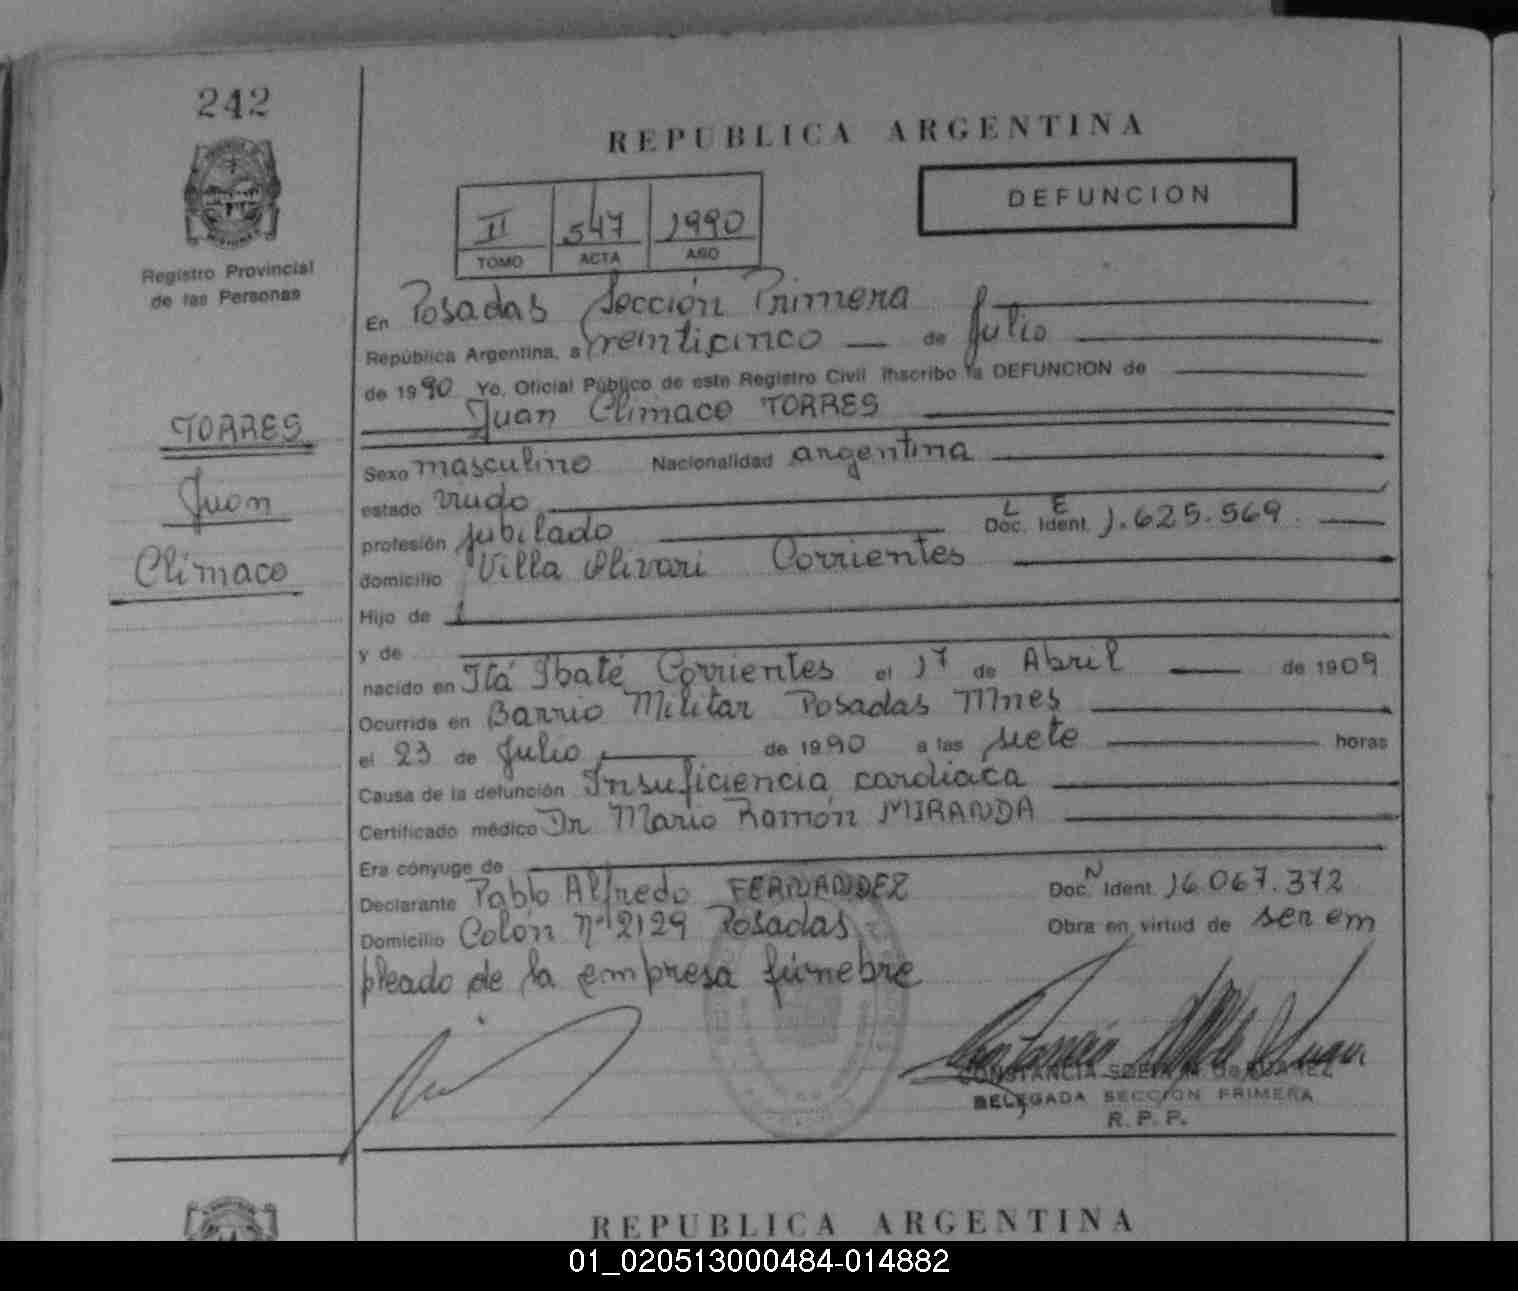 242
REPUBLICA ARGENTINA
DEFUNCION
II 547 1990
TOMO ACTA AÑO
Registro Provincial
de las Personas
En Posadas Sección Primera
República Argentina, a Veinticinco de Julio
de 1990 Yo, Oficial Público de este Registro Civil inscribo la DEFUNCION de
Juan Climaco TORRES
TORRES
Juan
Climaco
Sexo masculino Nacionalidad argentina
estado viudo
profesión jubilado L E Doc. Ident. 1.625.569
domicilio Villa Olivari Corrientes
Hijo de
y de
nacido en Itá Ibaté Corrientes el 17 de Abril de 1909
Ocurrida en Barrio Militar Posadas Mnes
el 23 de Julio de 1990 a las siete horas
Causa de la defunción Insuficiencia cardiaca
Certificado médico Dr Mario Ramón MIRANDA
Era cónyuge de
Declarante Pablo Alfredo FERNANDEZ Doc. N Ident. 16.067.372
Domicilio Colón Nº 2129 Posadas Obra en virtud de ser em
pleado de la empresa fúnebre
CONSTANCIA
DELEGADA SECCION PRIMERA
R. P. P.
REPUBLICA ARGENTINA
01_020513000484-014882